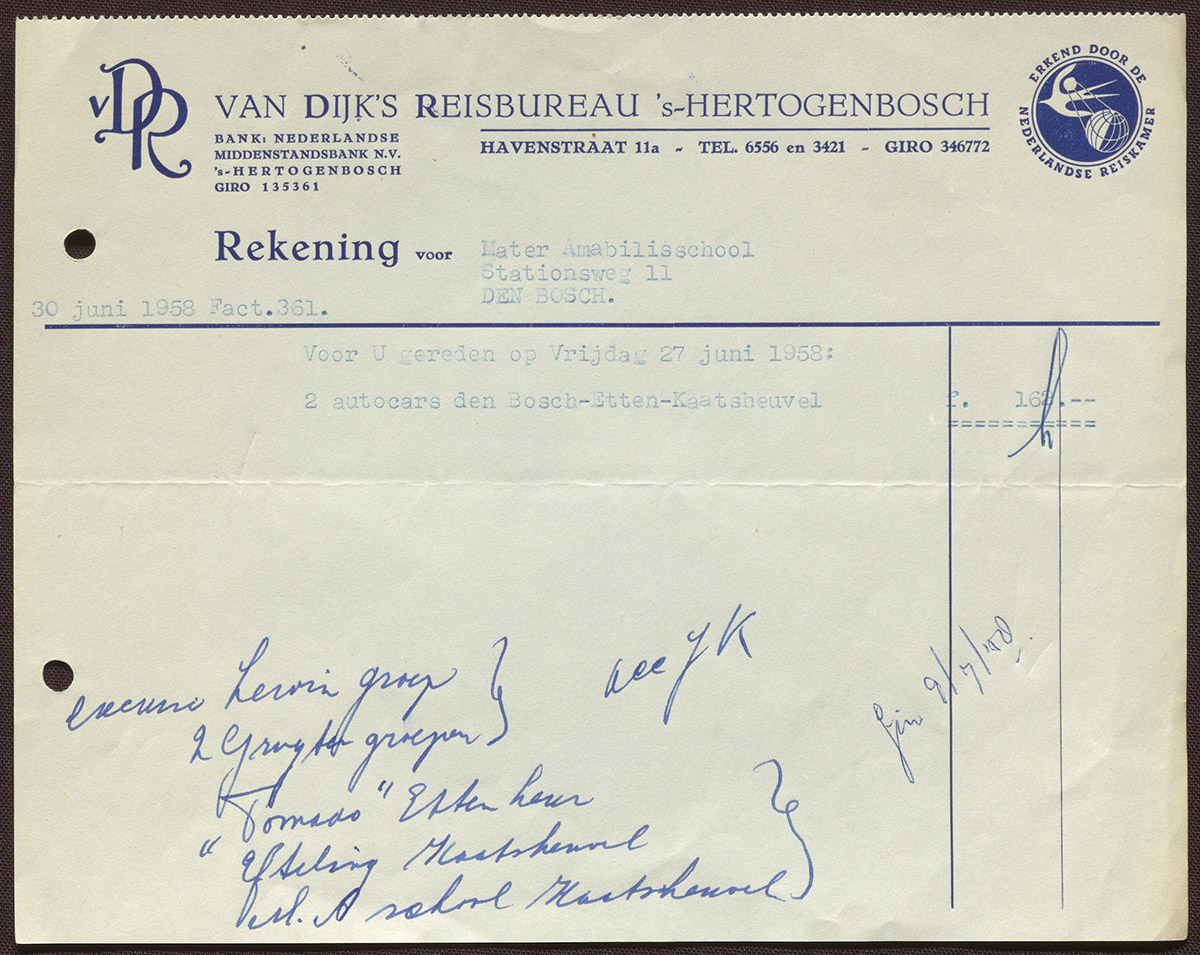 vDR
VAN DIJK'S REISBUREAU 's-HERTOGENBOSCH
BANK: NEDERLANDSE
MIDDENSTANDSBANK N.V.
's-HERTOGENBOSCH
GIRO 135361
HAVENSTRAAT 11a - TEL. 6556 en 3421 - GIRO 346772
ERKEND DOOR DE
NEDERLANDSE REISKAMER
Rekening voor
Mater Amabilisschool
Stationsweg 11
DEN BOSCH.
30 juni 1958 Fact.361.
Voor U gereden op Vrijdag 27 juni 1958:
2 autocars den Bosch-Etten-Kaatsheuvel f. 162.--
excursie Lewin groep
2 Gruyter groepen
acc JK
9/7/'58.
"Tornado" Etten leur
" Efteling Kaatsheuvel
M. A school Kaatsheuvel